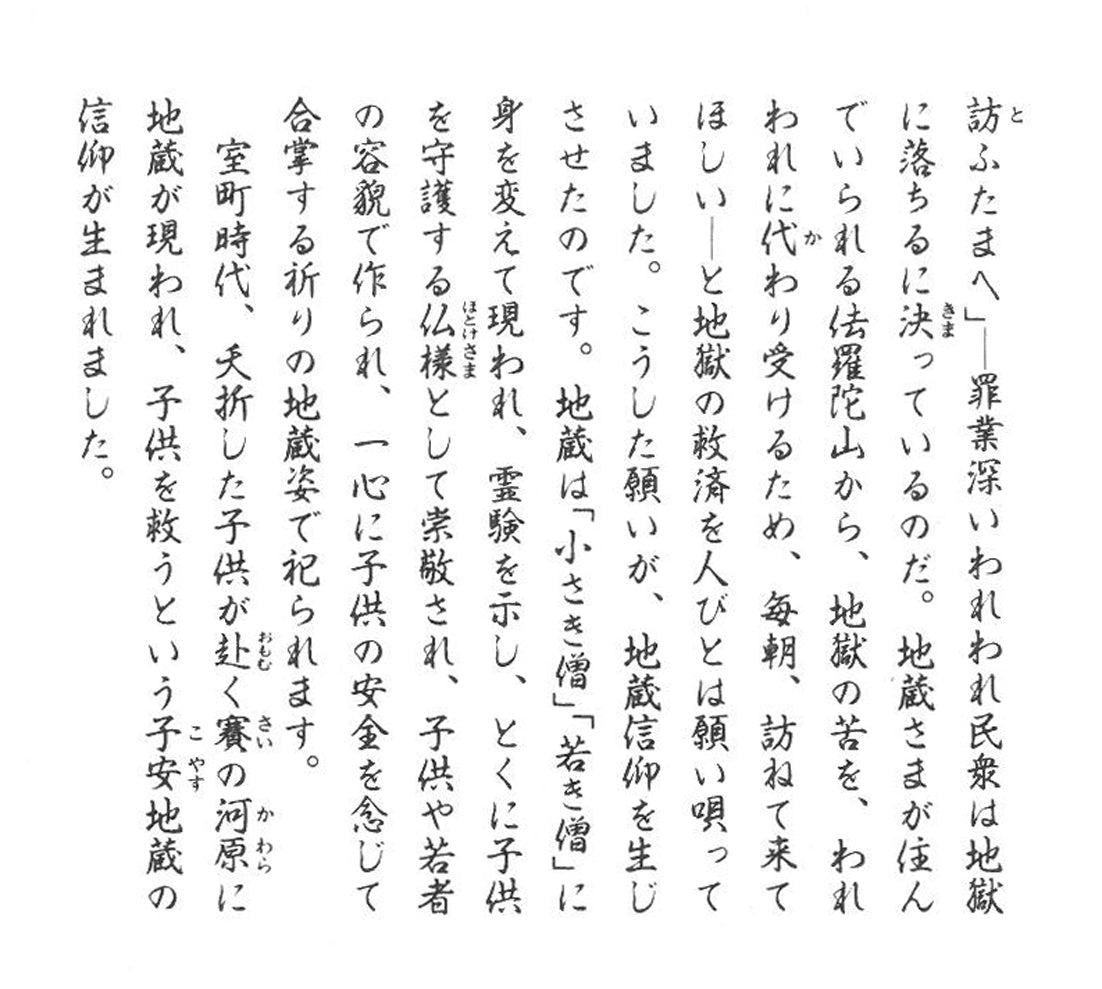 訪ふたまへ」――罪業深いわれわれ民衆は地獄
に落ちるに決っているのだ。地蔵さまが住ん
でいられる佉羅陀山から、地獄の苦を、われ
われに代わり受けるため、毎朝、訪ねて来て
ほしい――と地獄の救済を人びとは願い唄って
いました。こうした願いが、地蔵信仰を生じ
させたのです。地蔵は「小さき僧」「若き僧」に
身を変えて現われ、霊験を示し、とくに子供
を守護する仏様として崇敬され、子供や若者
の容貌で作られ、一心に子供の安全を念じて
合掌する祈りの地蔵姿で祀られます。
室町時代、夭折した子供が赴く賽の河原に
地蔵が現われ、子供を救うという子安地蔵の
信仰が生まれました。